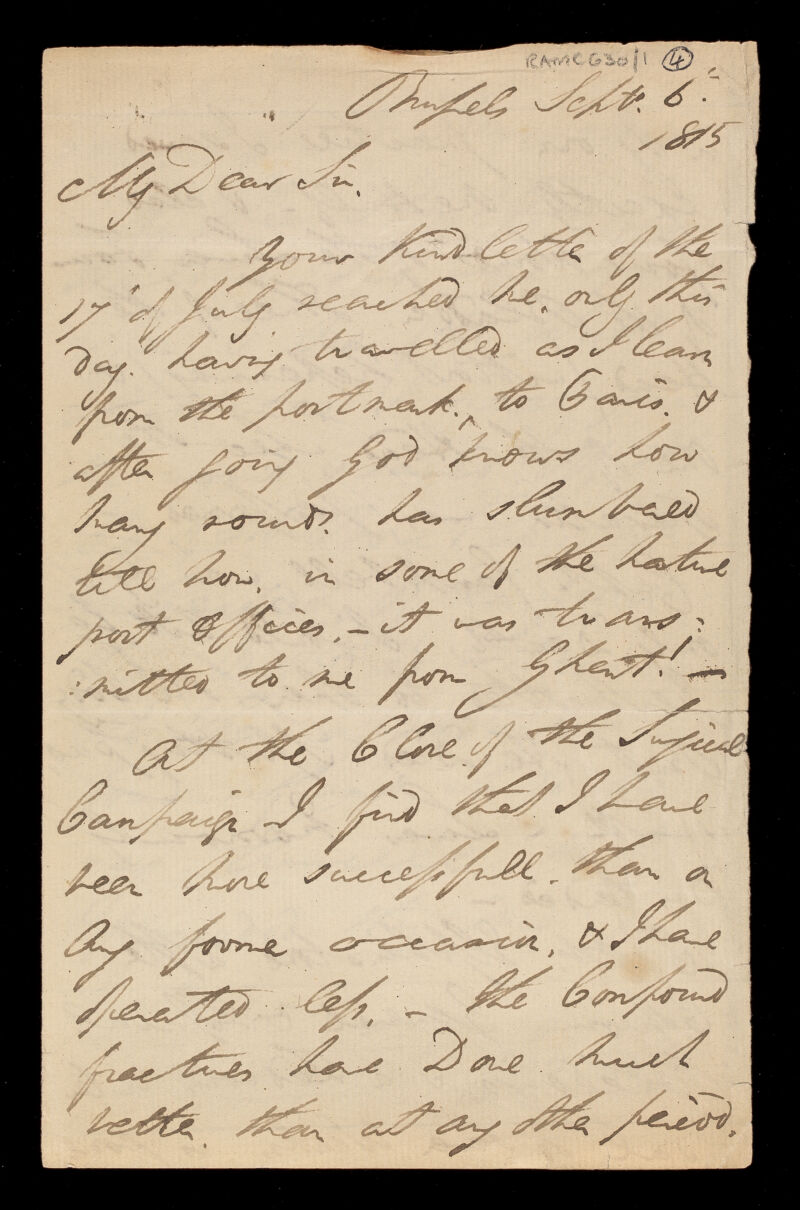 RAMC 630/1 4
Brussels Septr. 6.
1815
My Dear Sir.
Your kind letter of the
17 of July reached me, only this
day. having travelled as I learn
from the postmark., to Paris. &
after going God knows how
many rounds. has slumbered
till now. in some of the
post offices. – it was trans:
:mitted to me from Ghent! –
At the Close of the Surgical
Campaign I find that I have
been more successfull. than on
any former occasion, & I have
operated less. – the Compound
fractures have Done much
better. than at any other period.